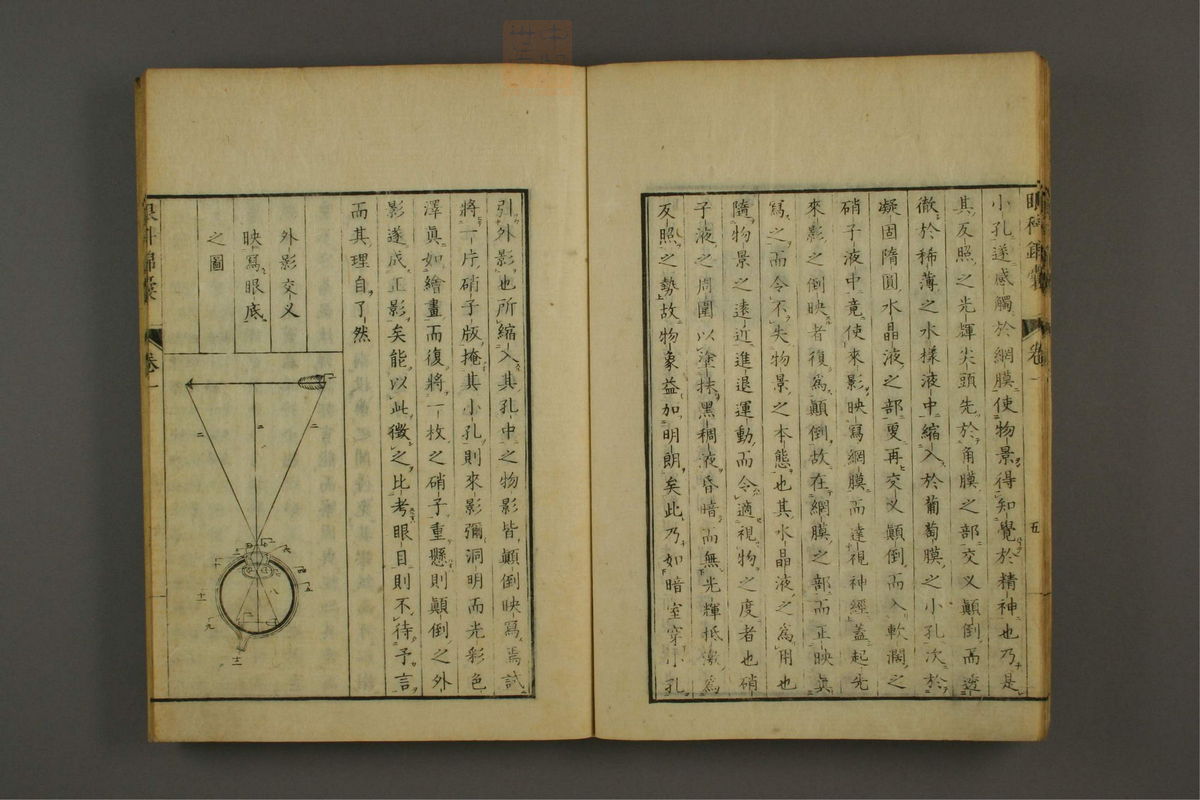 眼科錦囊 卷一 五
小孔遂感觸於網膜使物景得知覺於精神也乃是
其反照之光輝尖頭先於角膜之部交义顛倒而透
徹於稀薄之水樣液中縮入於葡萄膜之小孔次於
凝固隋圓水晶液之部更再交义顛倒而入軟濶之
硝子液中竟使來影映寫網膜而達視神經蓋起先
來影之倒映者復爲顛倒故在網膜之部而正映眞
寫之而令不失物景之本態也其水晶液之爲用也
隨物景之遠近進退運動而令適視物之度者也硝
子液之周圍以塗抹黑稠液昏暗而無光輝抵激爲
反照之勢故物象益加明朗矣此乃如暗室穿小孔
引外影也所縮入其孔中之物影皆顛倒映寫焉試
將一片硝子版掩其小孔則來影彌洞明而光彩色
澤眞如繪畫而復將一枚之硝子重懸則顛倒之外
影遂成正影矣能以此徵之比考眼目則不待予言
而其理自了然
外影交义
映寫眼底
之圖
一
二
二
十一
九
十二
眼科錦囊 卷一